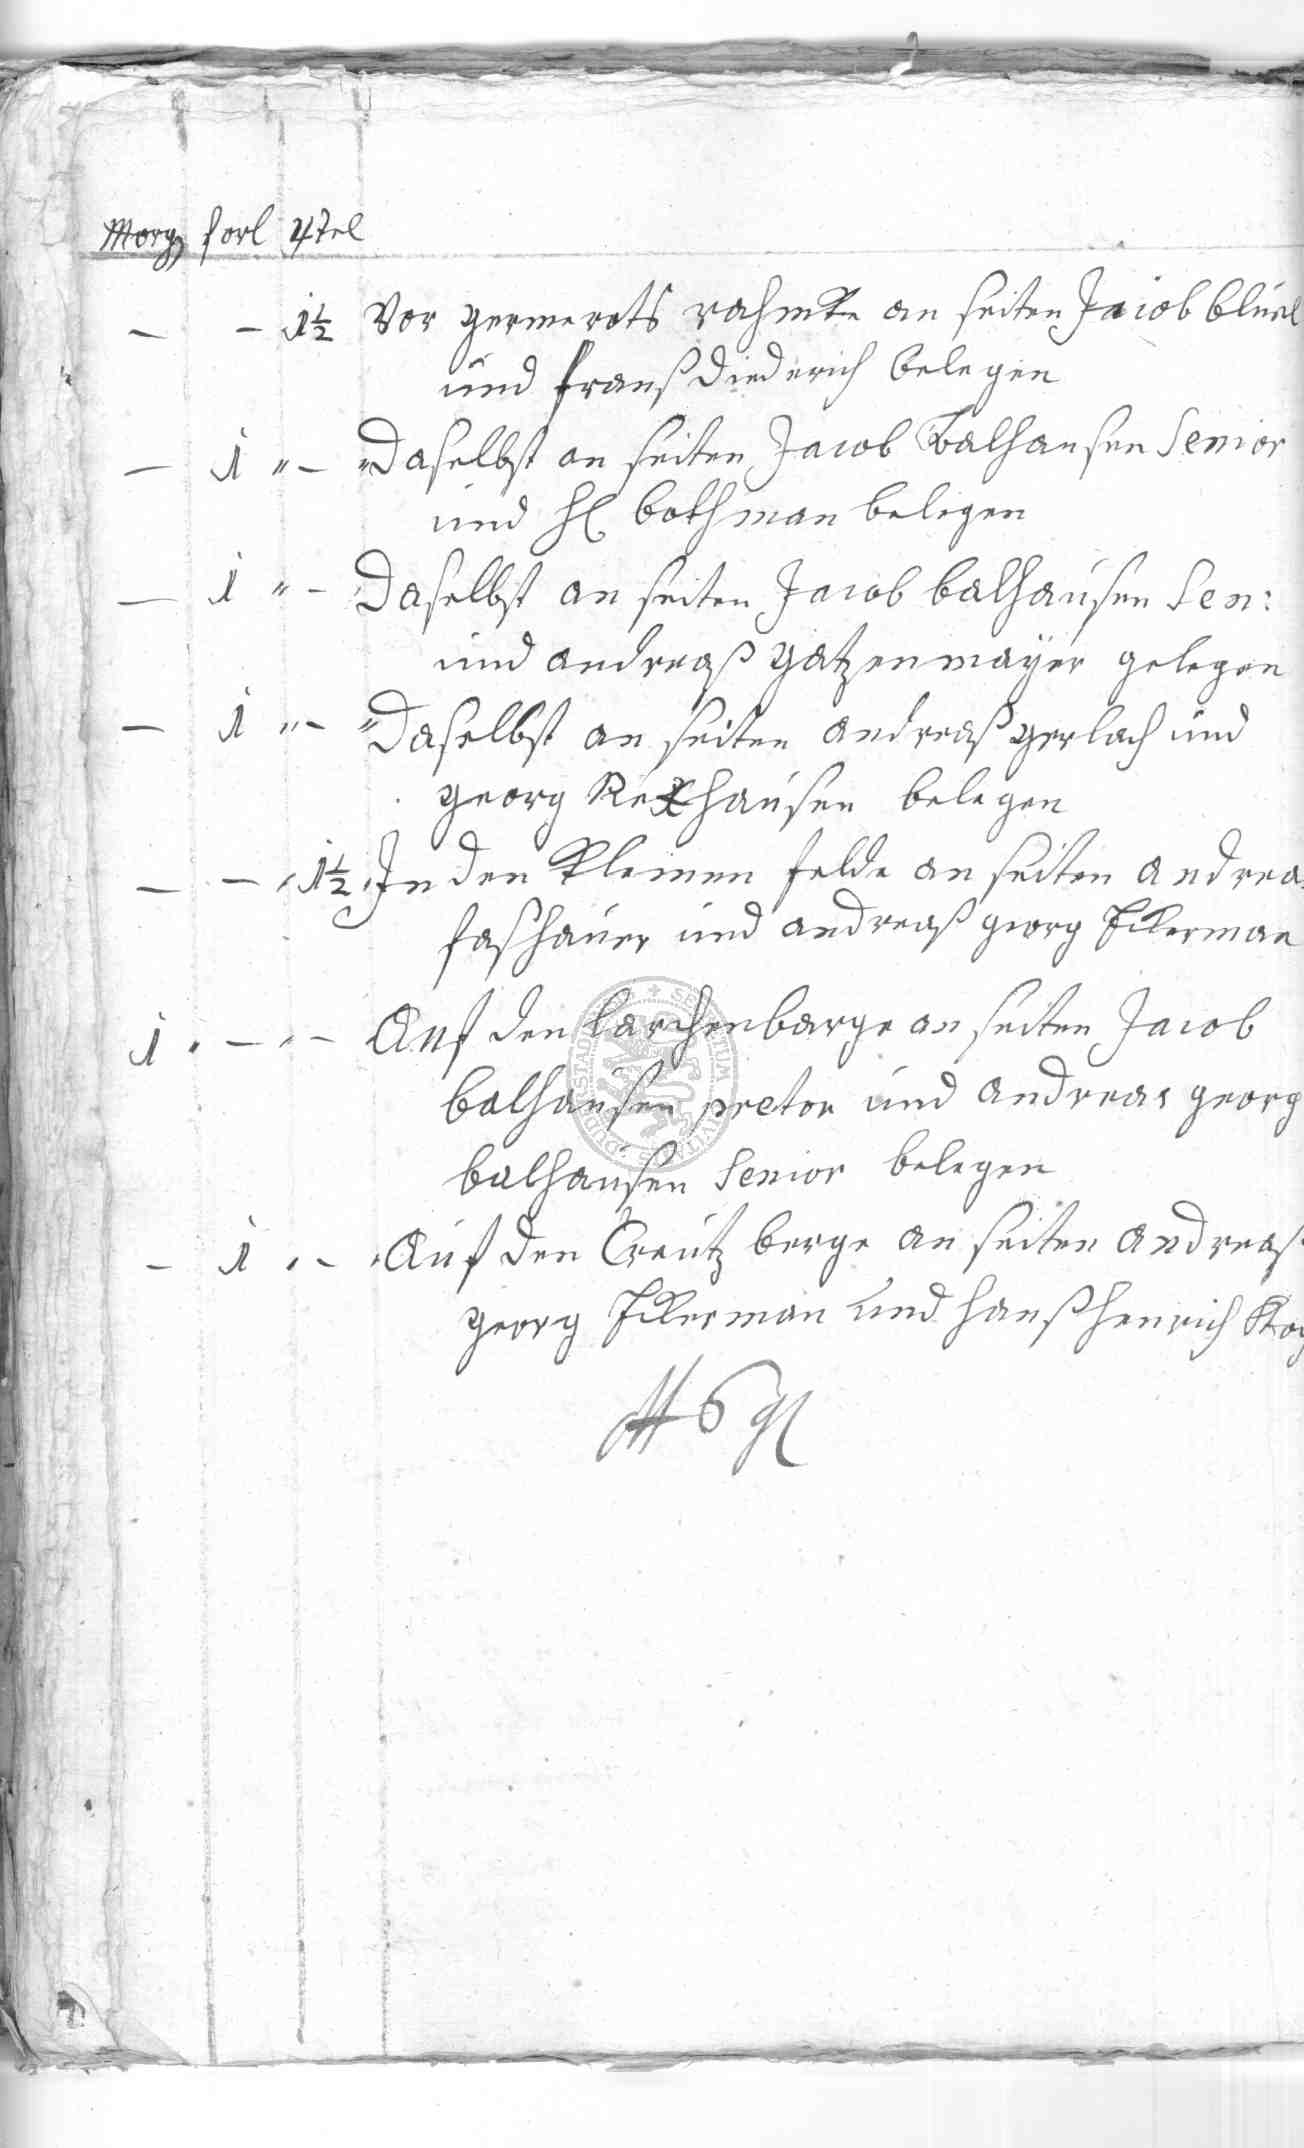 Morg forl 4tel
– – 1½ Vor germerots rahmke an seiten Jacob
und franß Diederich belegen
– 1 – Daselbst an seiten Jacob Balhausen Senior
und bothman belegen
– 1 – Daselbst an seiten Jacob balhausen Sen:
und andreaß gatzenmaÿer gelegen
– 1 – Daselbst an seiten andreaß gerlach und
georg Rexhausen belegen
– – 1½ In den kleinen felde an seiten andrea
faßhauer und andreaß georg Ikerman
1 – – Auf den larchenberge an seiten Jacob
balhausen pretor und andreas georg
balhausen Senior belegen
– 1 – Auf den Creutz berge an seiten andreaß
georg Ikerman und hanß henrich
6